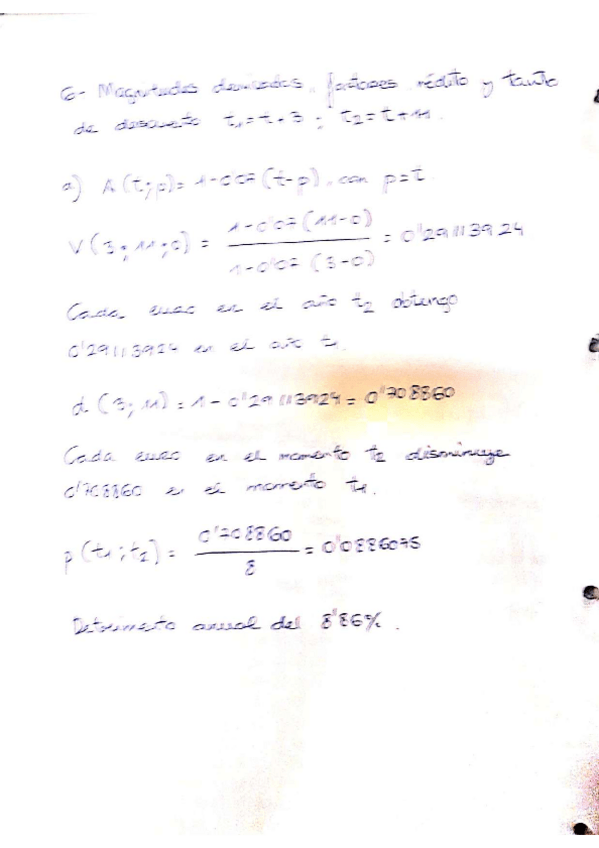 6- Magnitudes derivadas, factores, rédito y tanto
de descuento t₁=t+3 ; t₂=t+11.
a) A(t;p)= 1-0'07(t-p), con p=t.
V(3;11;0) = 1-0'07(11-0) / 1-0'07(3-0) = 0'29113924
Cada euro en el año t₂ obtengo
0'29113924 en el año t₁.
d(3;11) = 1-0'29113924 = 0'708860
Cada euro en el momento t₂ disminuye
0'708860 en el momento t₁.
p(t₁;t₂) = 0'708860 / 8 = 0'0886075
Detrimento anual del 8'86%.